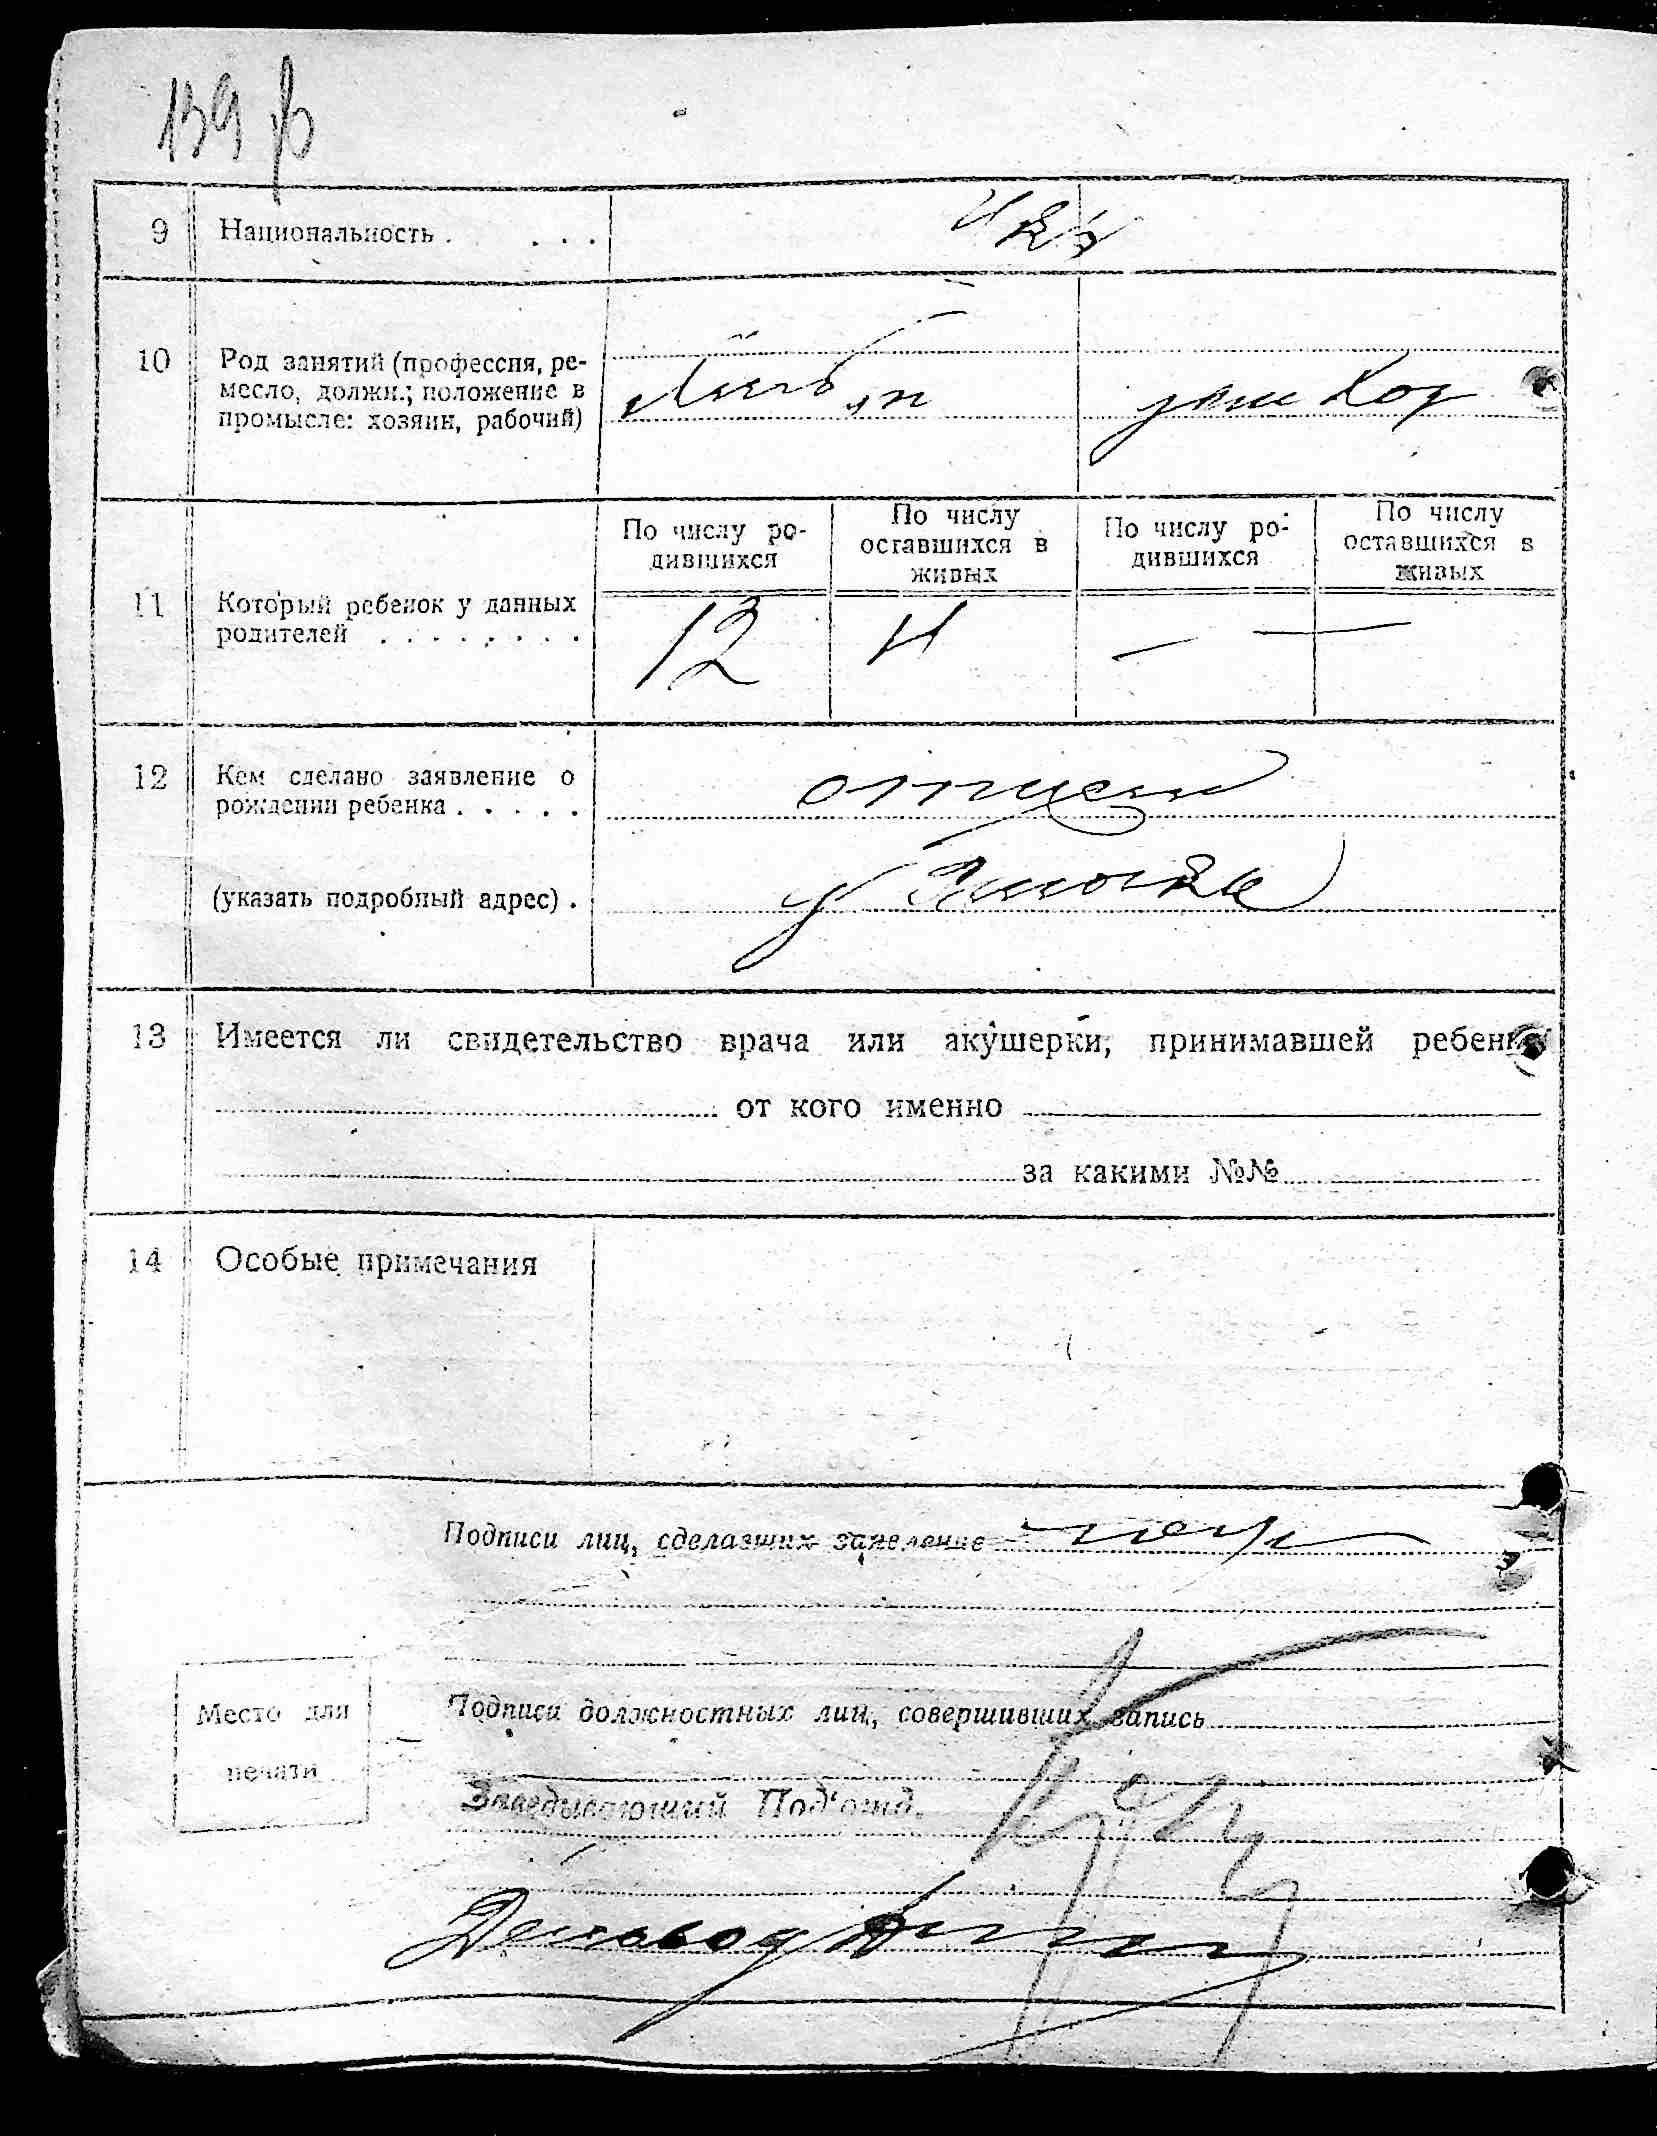 139
9 Национальность . . . .
10 Род занятий (профессия, ре-
месло, должн.; положение в
промысле: хозяин, рабочий)
Хлеб
дом хоз
По числу ро-
дившихся
По числу
оставшихся в
живых
По числу ро-
дившихся
По числу
оставшихся в
живых
11 Который ребенок у данных
родителей . . . . . . . .
12 — —
12 Кем сделано заявление о
рождении ребенка . . . . .
отцем
(указать подробный адрес) .
13 Имеется ли свидетельство врача или акушерки, принимавшей
от кого именно
за какими №№
14 Особые примечания
Подписи лиц, сделавших заявление
Место для
печати
Подписи должностных лиц, совершивших запись
Заведывающий Под'отд.
Деловод